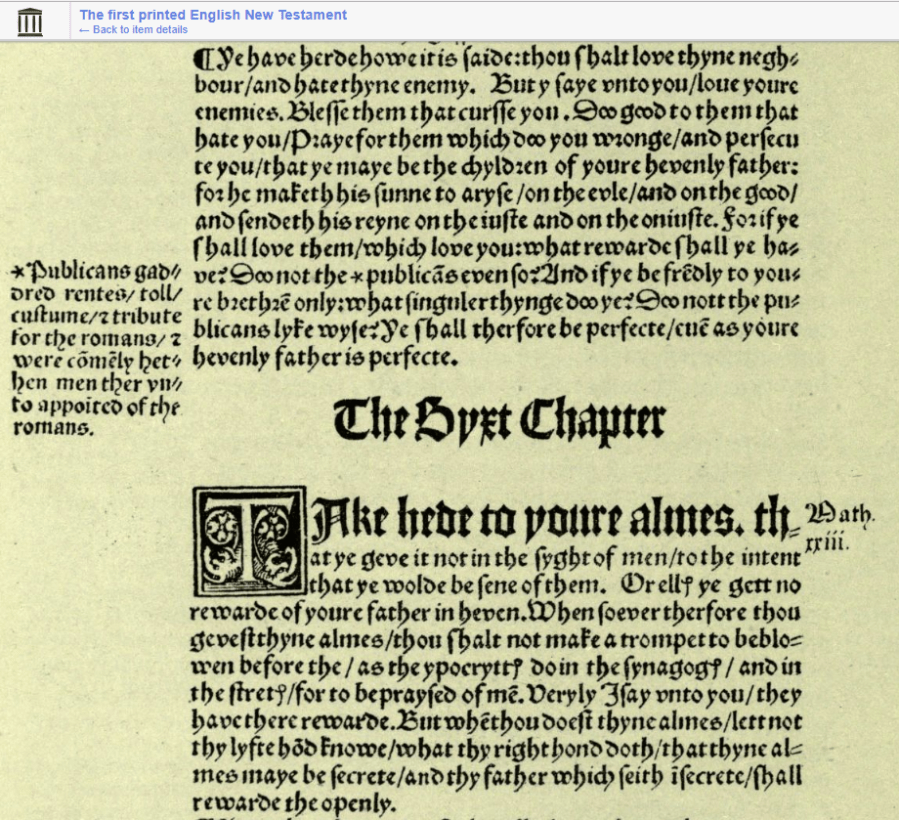 The first printed English New Testament
← Back to item details
¶Ye have herde howe it is saide: thou shalt love thyne negh⸗
bour/and hate thyne enemy. But y saye vnto you/loue youre
enemies. Blesse them that cursse you. Doo good to them that
hate you/Praye for them which doo you wronge/and persecu
te you/that ye maye be the chyldren of youre hevenly father:
for he maketh his sunne to aryse/on the evle/and on the good/
and sendeth his reyne on the iuste and on the oniuste. For if ye
shall love them/which love you: what rewarde shall ye ha⸗
ve? Doo not the *publicãs even so? And if ye be frẽdly to you⸗
re brethrẽ only: what singuler thynge doo ye? Doo nott the pu⸗
blicans lyke wyse? Ye shall therfore be perfecte/euẽ as youre
hevenly father is perfecte.
*Publicans gad⸗
dred rentes/ toll/
custume/ꝛ tribute
for the romans/ ꝛ
were cõmẽly het⸗
hen men ther vn⸗
to appoited of the
romans.
The Syxt Chapter
TAke hede to youre almes. th⸗
at ye geve it not in the syght of men/to the intent
that ye wolde be sene of them. Or ellꝭ ye gett no
rewarde of youre father in heven. When soever therfore thou
gevest thyne almes/thou shalt not make a trompet to be blo⸗
wen before the/ as the ypocryttꝭ do in the synagogꝭ/ and in
the stretꝭ/for to be praysed of mẽ. Veryly I say vnto you/they
have there rewarde. But whẽ thou doest thyne almes/lett not
thy lyfte hõd knowe/what thy right hond doth/that thyne al⸗
mes maye be secrete/and thy father which seith ĩ secrete/shall
rewarde the openly.
Math.
xxiii.